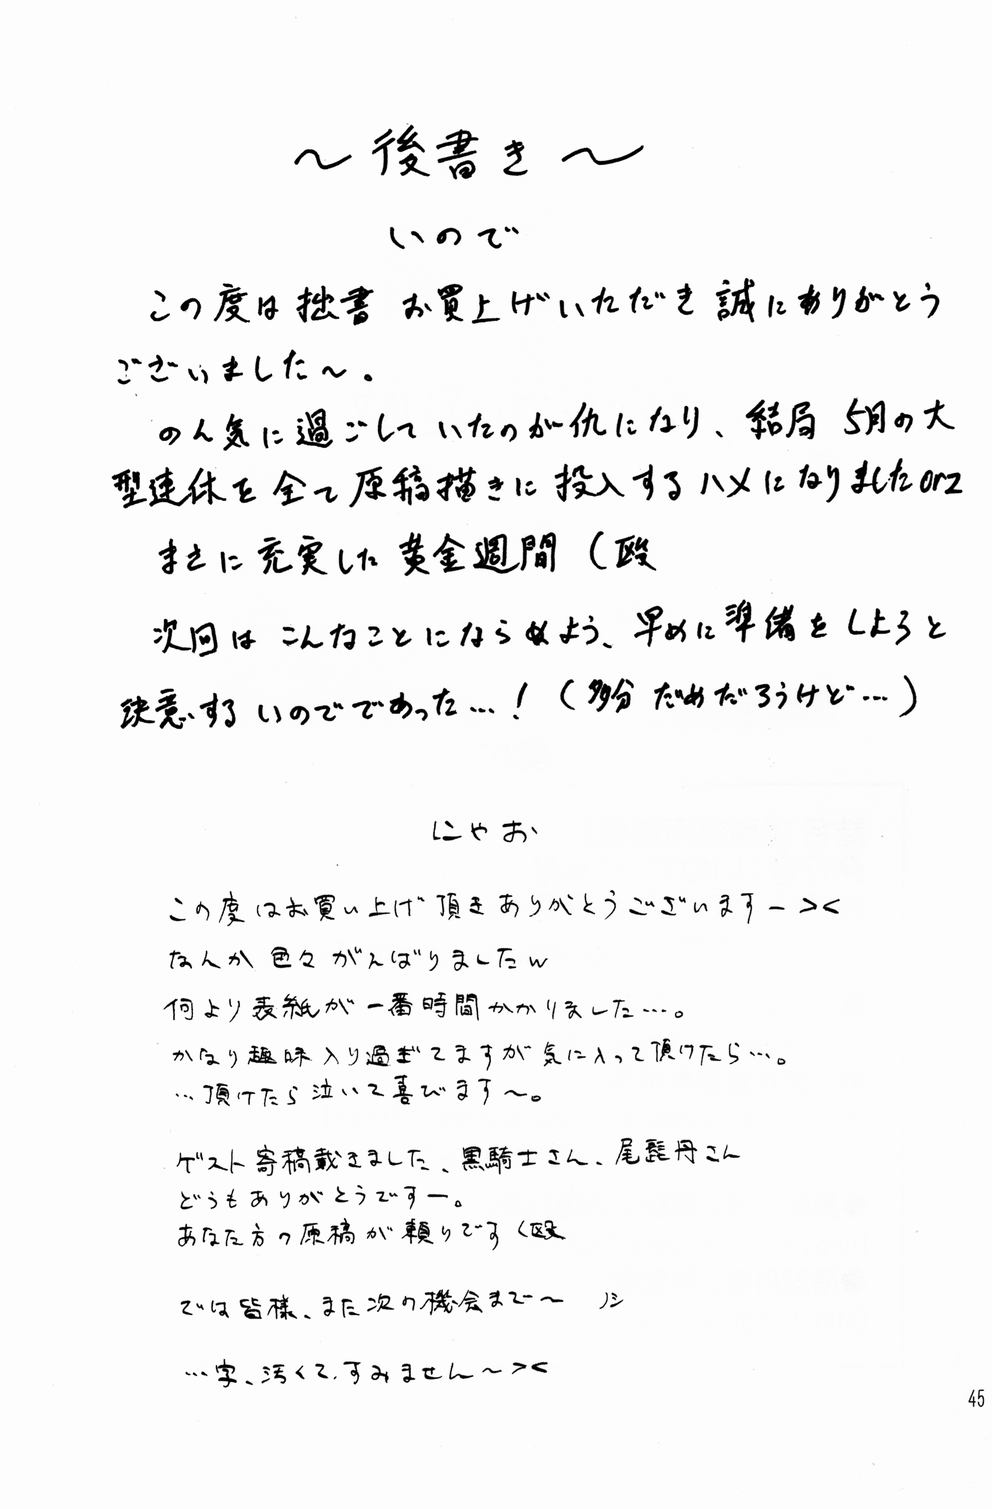 〜後書き〜
いので
この度は拙書 お買上げいただき誠にありがとう
ございました〜.
のん気に過ごしていたのが仇になり、結局 5月の大
型連休を全て原稿描きに投入するハメになりましたorz
まさに充実した黄金週間 (殴
次回は こんなことにならぬよう、早めに準備をしようと
決意するいのでであった…! (多分 だめだろうけど…)
にやお
この度はお買い上げ頂きありがとうございますー><
なんか 色々がんばりましたw
何より表紙が一番時間かかりました…。
かなり趣味入り過ぎてますが気に入って頂けたら…。
…頂けたら泣いて喜びます〜。
ゲスト寄稿戴きました、黒騎士さん、尾髭丹さん
どうもありがとうですー。
あなた方の原稿が頼りです(殴
では皆様、また次の機会まで〜 ノシ
…字、汚くて、すみません〜><
45